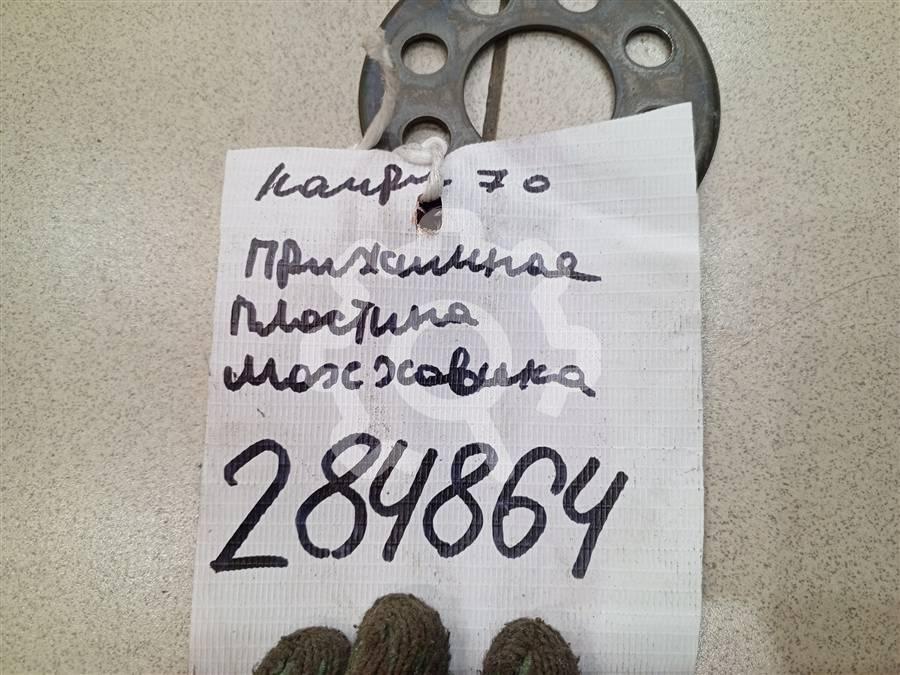 камри 70
Прижимная
Пластина
Мажховика
284864